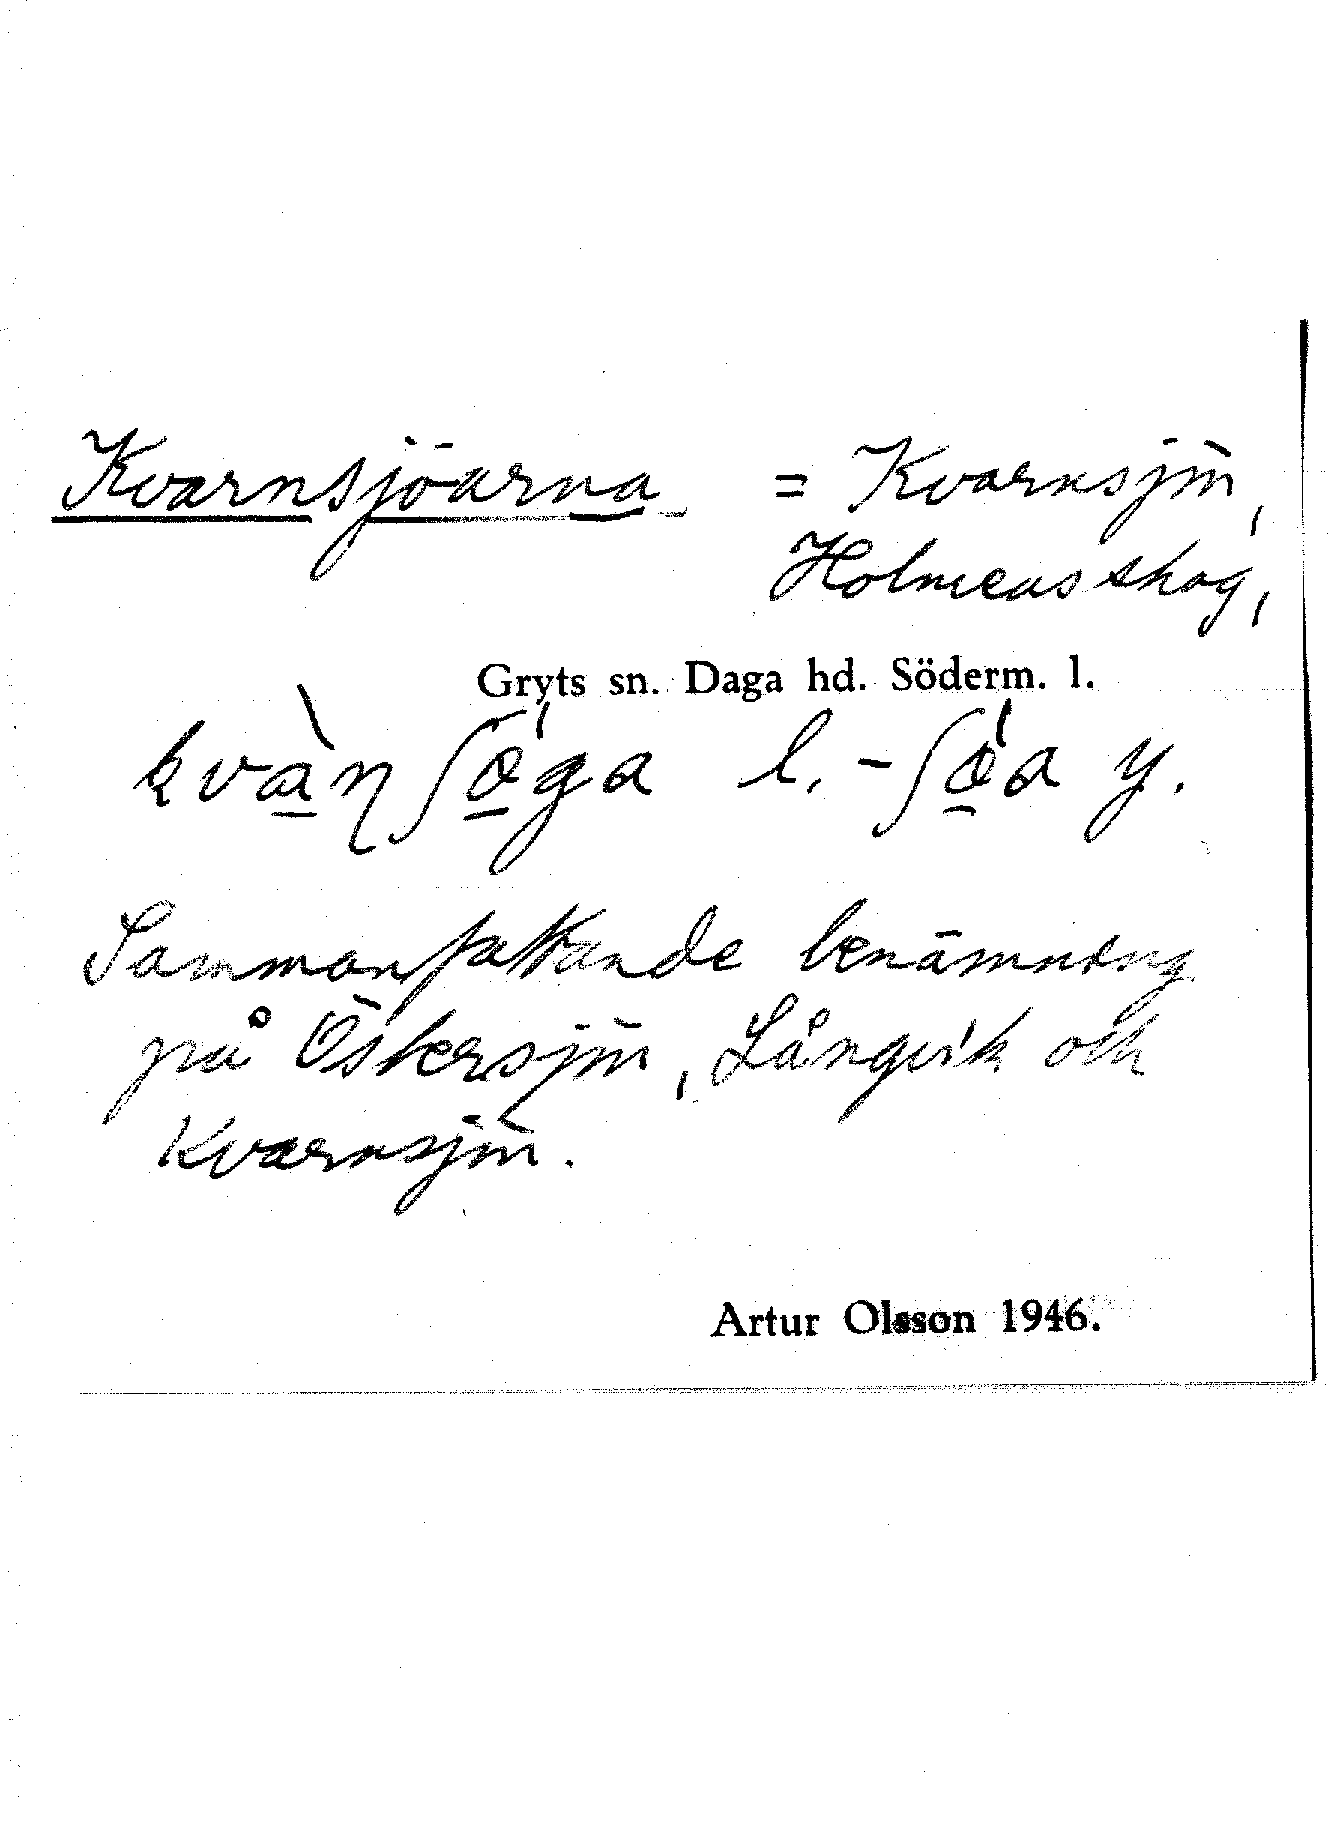 Kvarnsjöarna = Kvarnsjön,
Holmens skog,
Gryts sn. Daga hd. Söderm. l.
kvàṉʃǿ̱ga l. -ʃǿ̱a y.
Sammanfattande benämning
på Östersjön, Långvik och
Kvarnsjön.
Artur Olsson 1946.